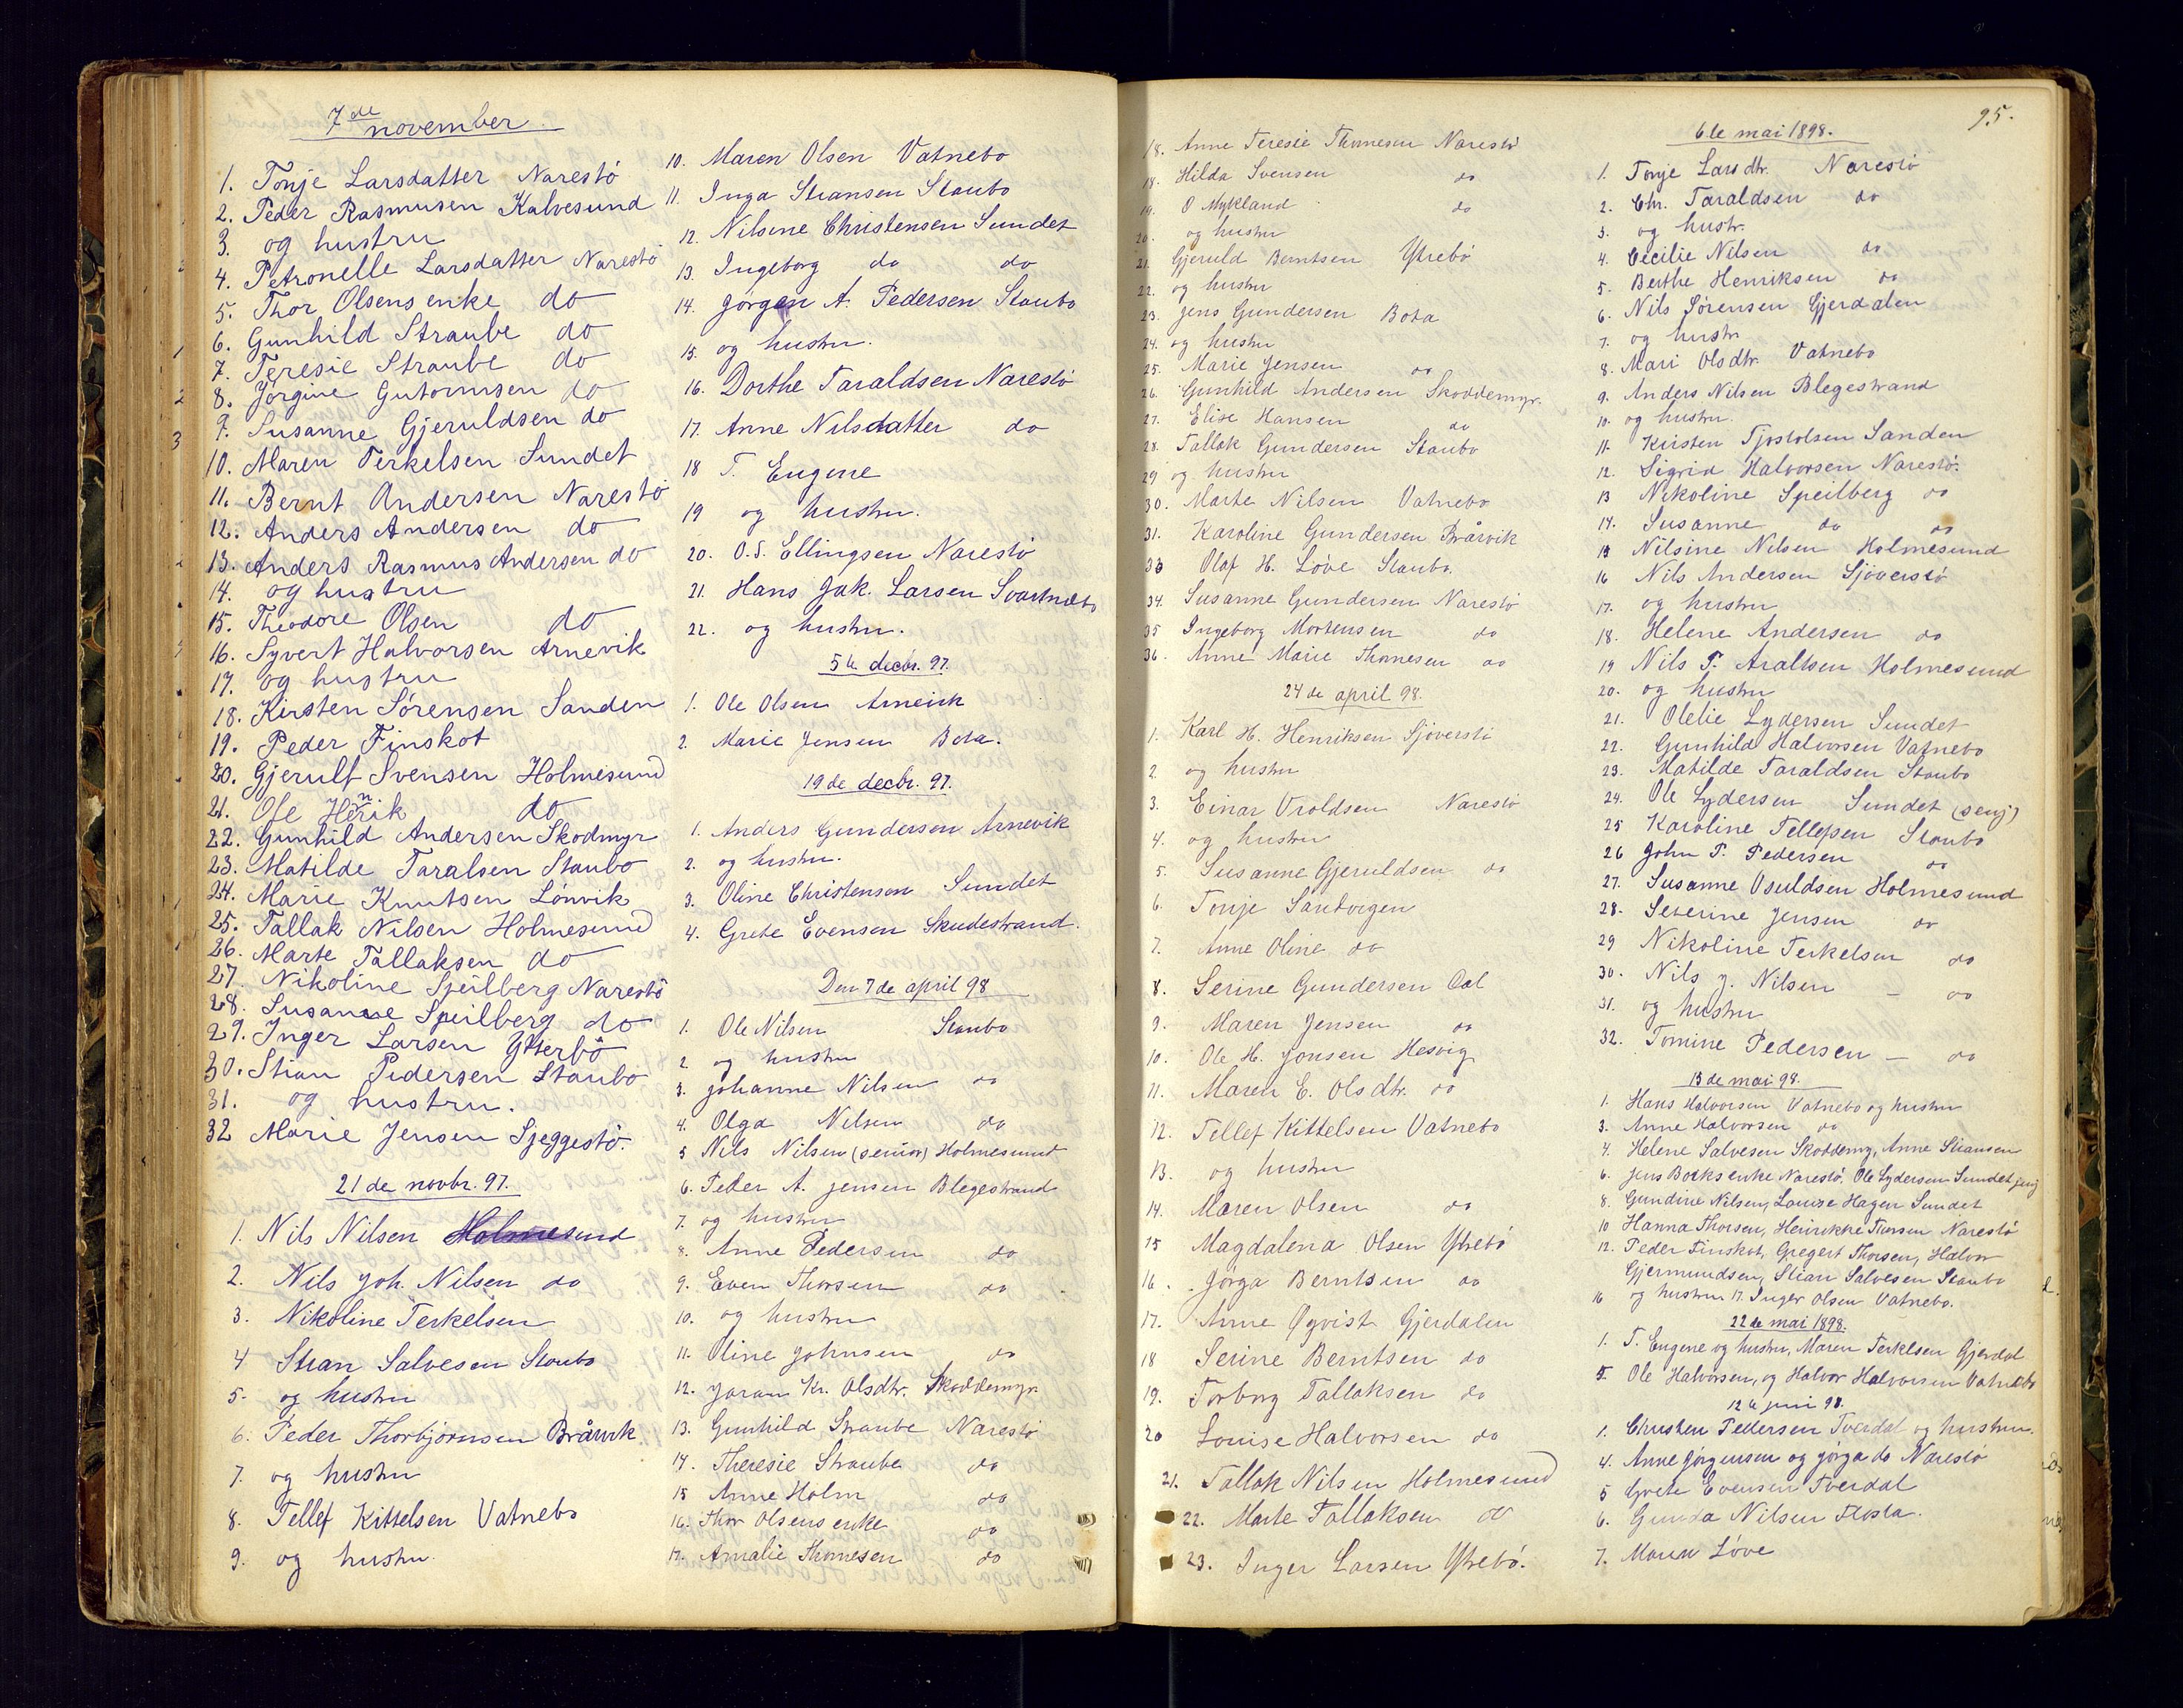 7de november
1. Tonje Larsdatter Narestö
2. Peder Rasmusen Kalvesund
3. og hustru
4. Petronelle Larsdatter Narestö
5. Thor Olsens enke do
6. Gunhild Straube do
7. Teresie Straube do
8. Jörgine Gutormsen do
9. Susanne Gjeruldsen do
10. Maren Terkelsen Sundet
11. Bernt Andersen Narestö
12. Anders Andersen do
13. Anders Rasmus Andersen do
14. og hustru
15. Theodore Olsen do
16. Syvert Halvorsen Arnevik
17. og hustru
18. Kirsten Sörensen Sanden
19. Peder Finskot
20. Gjerulf Svensen Holmesund
21. Ole Henrik do
22. Gunhild Andersen Skodmyr
23. Matilde Taralsen Staubo
24. Marie Knutsen Lönvik
25. Tallak Nilsen Holmesund
26. Marte Tallaksen do
27. Nikoline Speilberg Narestö
28. Susanne Speilberg do
29. Inger Larsen Ytterbö
30. Stian Pedersen Staubo
31. og hustru.
32 Marie Jensen Sjeggestö.
21de novbr. 97.
1. Nils Nilsen Holmesund
2. Nils Joh. Nilsen do
3. Nikoline Terkelsen
4 Stian Salvesen Staubo
5. og hustru
6. Peder Thorbjörnsen Bråvik
7. og hustru
8. Tellef Kittelsen Vatnebo
9. og hustru.
10. Maren Olsen Vatnebo
11. Inga Stiansen Staubo
12. Nilsine Christensen Sundet
13. Ingeborg do do
14. Jörgen A. Pedersen Staubo
15. og hustru.
16. Dorthe Taraldsen Narestö
17. Anne Nilsdatter do
18 T. Eugene
19 og hustru.
20. O. S. Ellingsen Narestö
21. Hans Jak. Larsen Svartnebo
22. og hustru.
5te decbr. 97.
1. Ole Olsen Arnevik
2. Marie Jensen Bota.
19de decbr. 97.
1. Anders Gundersen Arnevik
2. og hustru.
3. Oline Christensen Sundet
4. Grete Evensen Skudestrand.
Den 7de april 98
1. Ole Nilsen Staubo
2 og hustru
3. Johanne Nilsen do
4. Olga Nilsen do
5 Nils Nilsen (senior) Holmesund
6. Peder A. Jensen Blegestrand
7. og hustru
8. Anne Pedersen do
9. Even Thorsen do
10. og hustru
11. Oline Johnsen do
12. Joran Kr. Olsdtr. Skoddemyr
13. Gunhild Straube Narestö
14. Theresie Straube do
15 Anne Holm do
16. Thor Olsens enke do
17. Amalie Thomesen do
95.
18. Anne Teresie Thomesen Narestö
18. Hilda Svensen do
19. O Mykland do
20. og hustru
21. Gjeruld Berntsen Ytrebö
22. og hustru
23. Jens Gundersen Bota
24. og hustru
25. Marie Jensen do
26. Gunhild Andersen Skoddemyr.
27. Elise Hansen do
28. Tallak Gundersen Staubo
29 og hustru
30. Marte Nilsen Vatnebo
31. Karoline Gundersen Bråvik
33 Olaf H. Löve Staubo.
34. Susanne Gundersen Narestö
35 Ingeborg Mortensen do
36. Anne Marie Thomesen do
24de april 98.
1. Karl H. Henriksen Sjöverstö
2. og hustru
3. Einar Vroldsen Narestö
4. og hustru
5. Susanne Gjeruldsen do
6. Tonje Sandvigen
7. Anne Oline do
8. Serine Gundersen Dal
9. Maren Jensen do
10. Ole H. Jonsen Hesvig
11. Maren E. Olsdtr. do
12. Tellef Kittelsen Vatnebo
13. og hustru
14. Maren Olsen do
15 Magdalena Olsen Ytrebö
16. Jörga Berntsen do
17. Anne Øqvist Gjerdalen
18 Serine Berntsen do
19. Torborg Tallaksen do
20 Louise Halvorsen do
21. Tallak Nilsen Holmesund
22. Marte Tallaksen do
23. Inger Larsen Ytrebö.
6te mai 1898.
1. Tonje Larsdtr. Narestö
2. Chr. Taraldsen do
3. og hustr.
4. Cecilie Nilsen do
5. Berthe Henriksen do
6. Nils Sörensen Gjerdalen
7. og hustr
8. Mari Olsdtr. Vatnebo
9. Anders Nilsen Blegestrand
10. og hustru.
11. Kirsten Tjostolsen Sanden
12. Sigrid Halvorsen Narestö.
13 Nikoline Speilberg do
14. Susanne do do
15 Nilsine Nilsen Holmesund
16 Nils Andersen Sjöverstö
17. og hustru
18. Helene Andersen do
19 Nils T. Araltsen Holmesund
20. og hustru
21. Olelie Lydersen Sundet
22. Gunhild Halvorsen Vatnebo
23. Matilde Taraldsen Staubo
24. Ole Lydersen Sundet (senj)
25 Karoline Tellefsen Staubo
26 John T. Pedersen do
27. Susanne Osuldsen Holmesund
28. Severine Jensen do
29 Nikoline Terkelsen do
30. Nils J. Nilsen – do
31. og hustru
32. Tomine Pedersen – do
13de mai 98.
1. Hans Halvorsen Vatnebo og hustru
3. Anne Halvorsen do
4. Helene Salvesen Skoddemy, Anne Stiansen
6. Jens Boeks enke Narestö, Ole Lydersen Sundet junj
8. Gundine Nilsen, Louise Hagen Sundet
10 Hanna Thorsen, Henrikke Thorsen Narestö
12. Peder Finskot, Gregert Thorsen, Halvor
Gjermundsen, Stian Salvesen Staubo
16 og hustru 17. Inger Olsen Vatnebo.
22de mai 1898.
1. T. Eugene og hustru, Maren Terkelsen Gjerdal
5. Ole Halvorsen, og Halvor Halvorsen Vatnebo
12te juni 98.
1. Christen Pedersen Tverdal og hustru.
4. Anne Jörgensen og Jörga do Narestö
5 Grete Evensen Tverdal
6. Gunda Nilsen Flosta.
7. Maren Löve